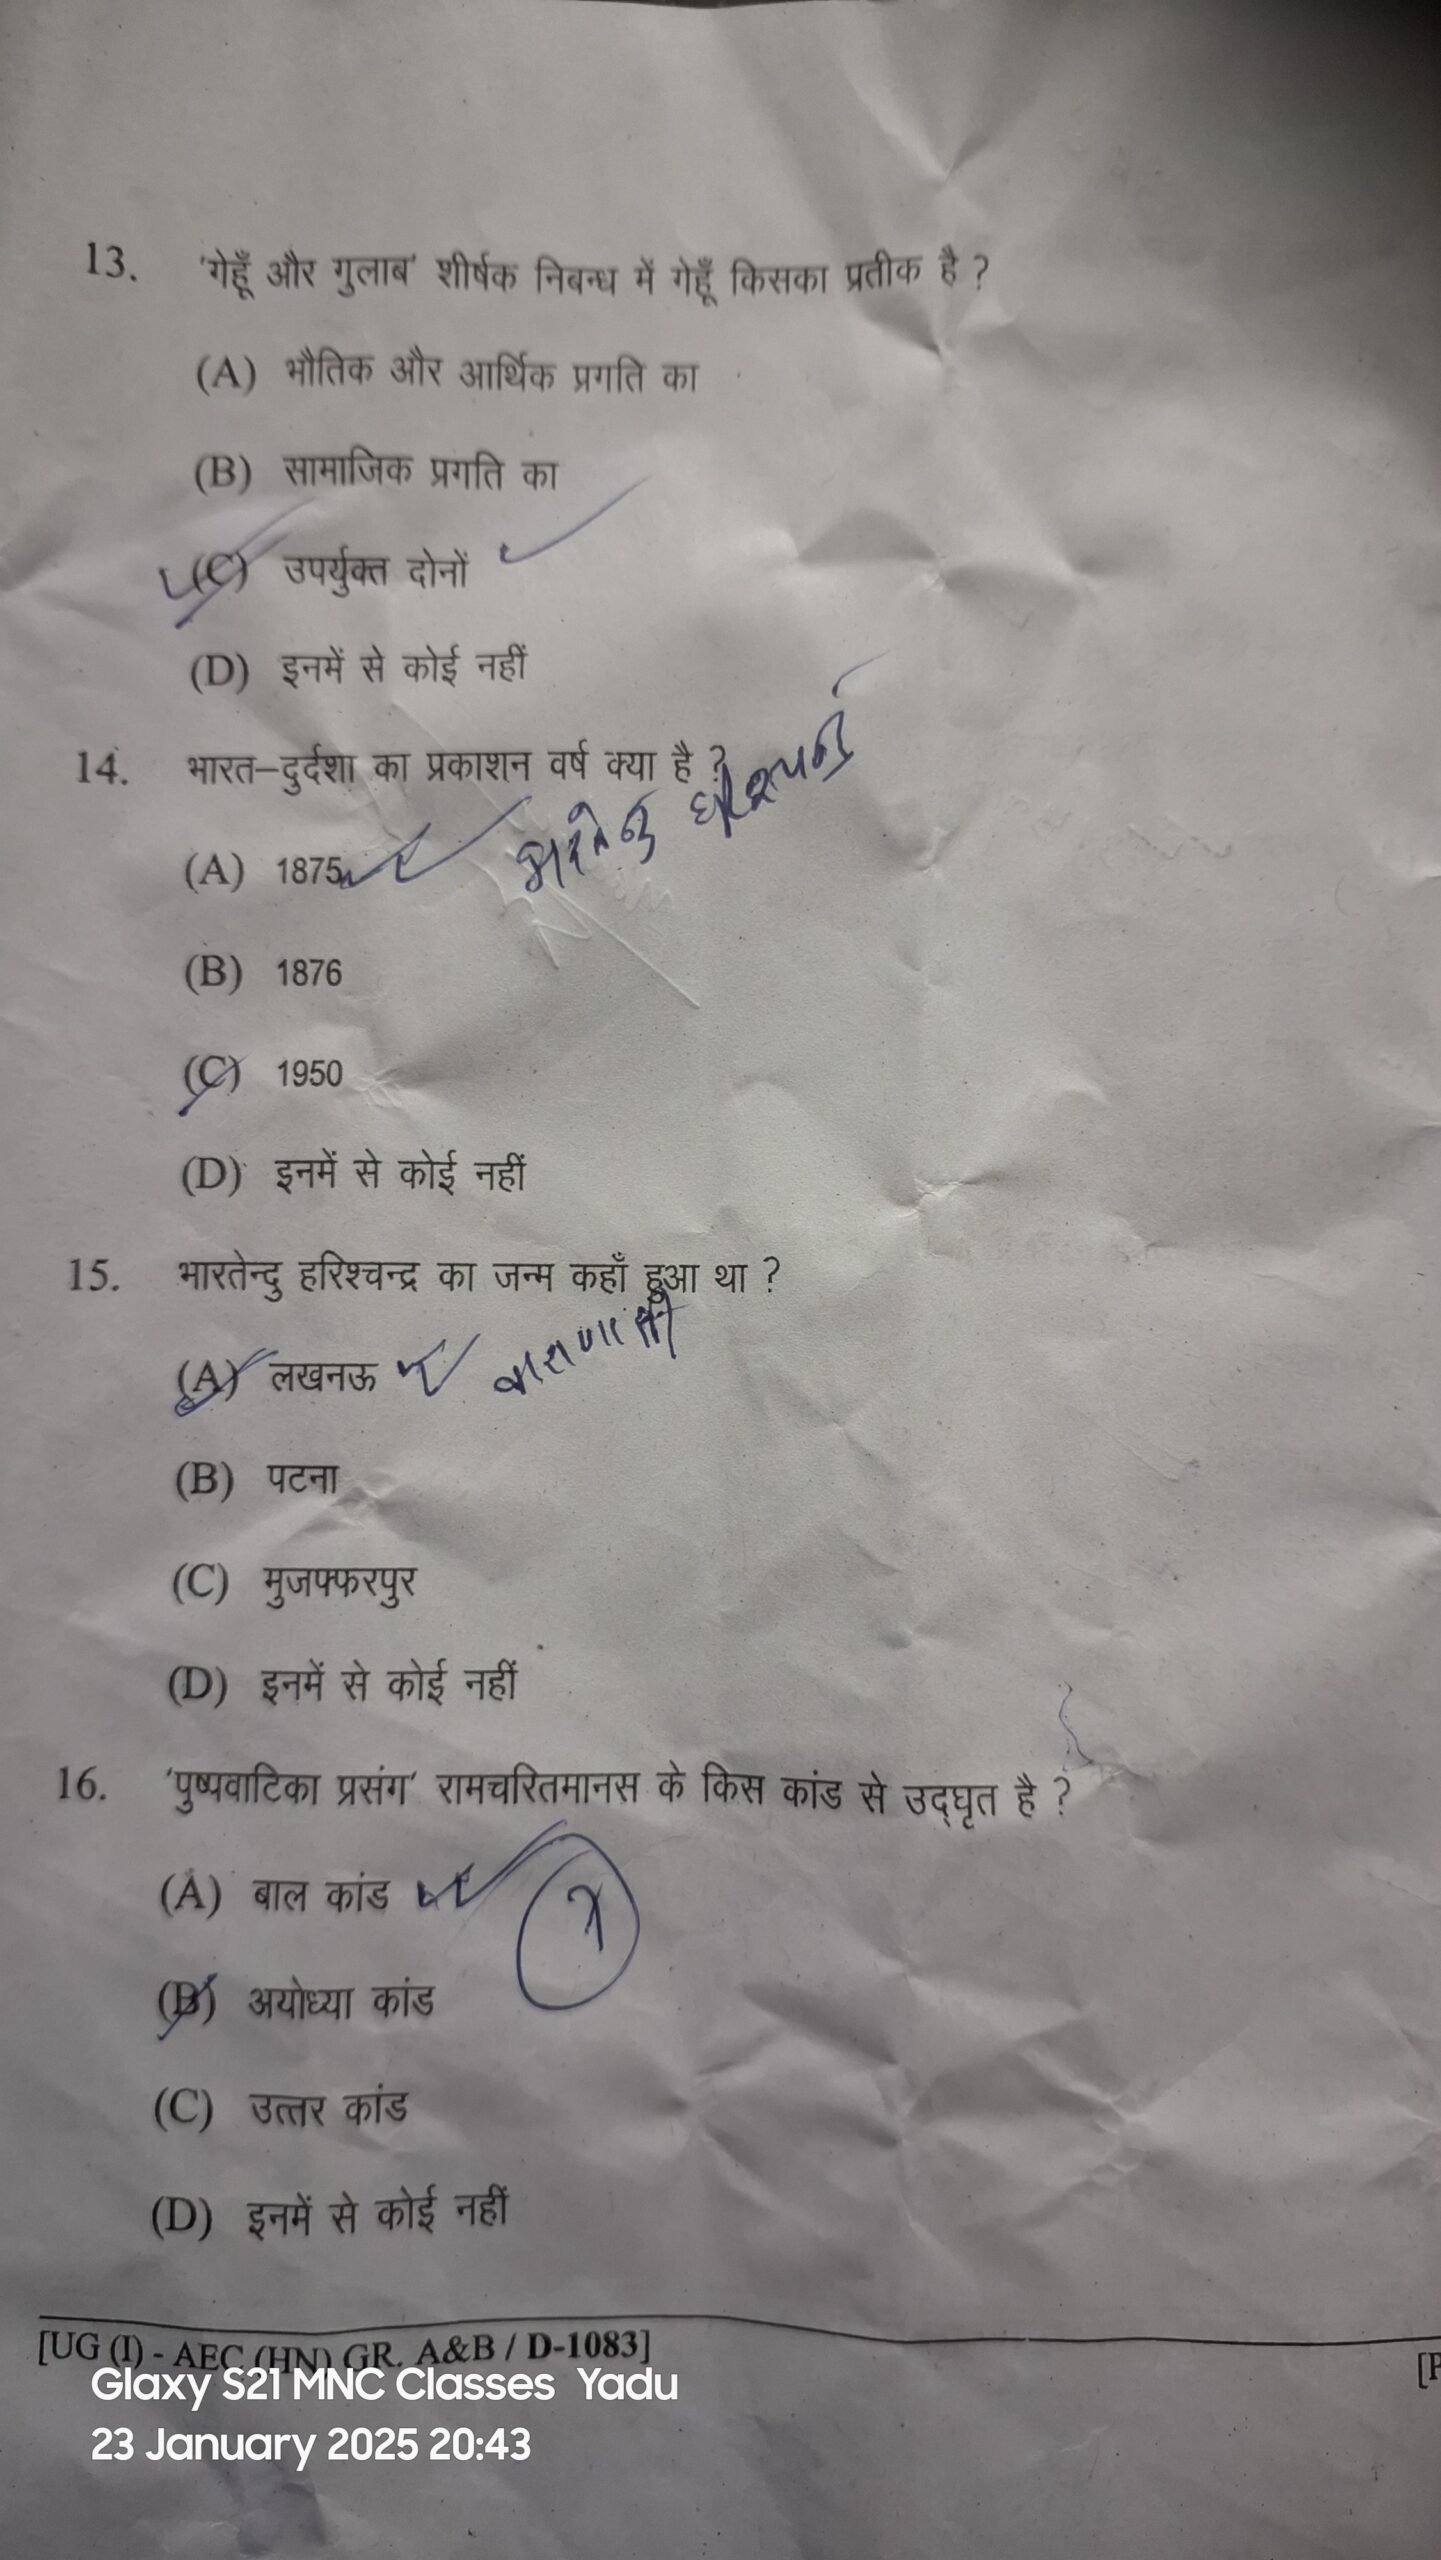 13. 'गेहूँ और गुलाब' शीर्षक निबन्ध में गेहूँ किसका प्रतीक है ?
(A) भौतिक और आर्थिक प्रगति का
(B) सामाजिक प्रगति का
(C) उपर्युक्त दोनों
(D) इनमें से कोई नहीं
14. भारत-दुर्दशा का प्रकाशन वर्ष क्या है ?
(A) 1875
(B) 1876
(C) 1950
(D) इनमें से कोई नहीं
15. भारतेन्दु हरिश्चन्द्र का जन्म कहाँ हुआ था ?
(A) लखनऊ
(B) पटना
(C) मुजफ्फरपुर
(D) इनमें से कोई नहीं
16. 'पुष्पवाटिका प्रसंग' रामचरितमानस के किस कांड से उद्घृत है ?
(A) बाल कांड
(B) अयोध्या कांड
(C) उत्तर कांड
(D) इनमें से कोई नहीं
[UG (I) - AEC (HN) GR. A&B / D-1083]
Glaxy S21 MNC Classes Yadu
23 January 2025 20:43